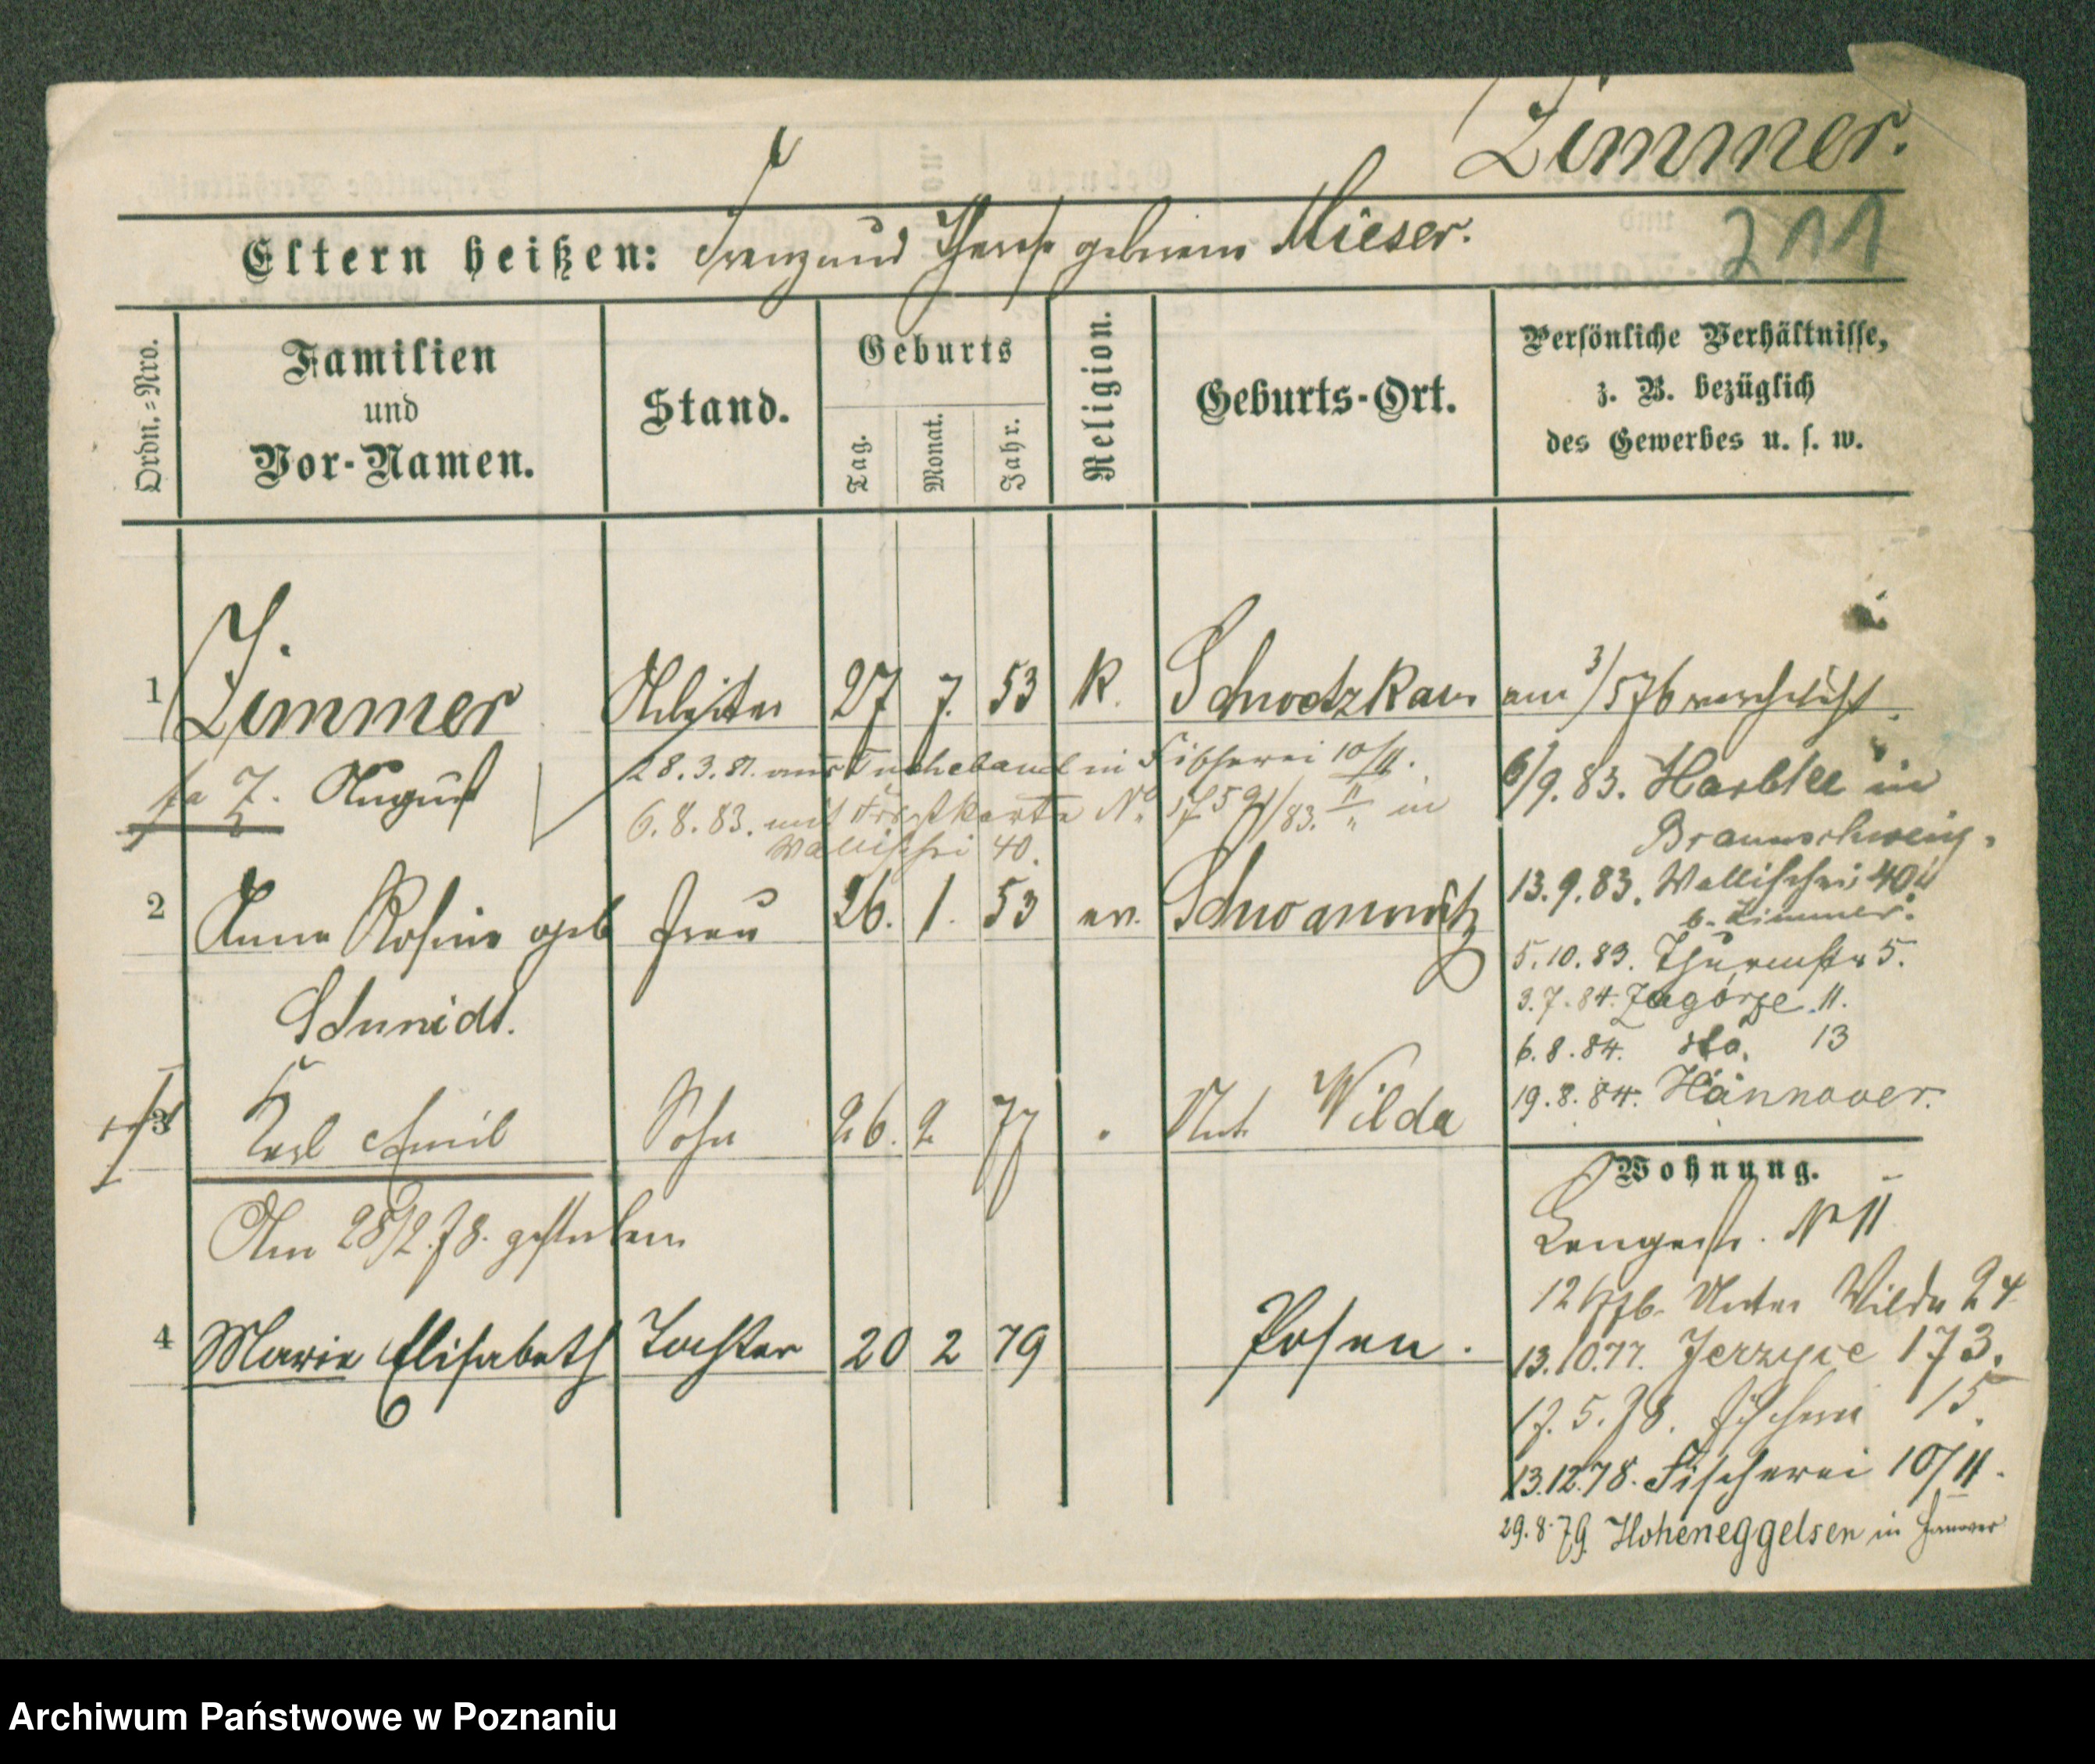 Zimmer.
211
Eltern heißen: Franz und Therese geborene Mieser.
Ordn.=Nro.
Familien
und
Vor-Namen.
Stand.
Geburts
Tag.
Monat.
Jahr.
Religion.
Geburts-Ort.
Persönliche Verhältnisse,
z. B. bezüglich
des Gewerbes u. s. w.
1 Zimmer Arbeiter 27 7. 53 K. Schwetzkau am 3/5 76 verehelicht.
August
28.3.81. aus in Fischerei 10/11.
6.8.83. mit No 1759/83. in
Wallischei 40.
6/9.83. Harbke in
Braunschweig.
2 Anna Rosine geb Frau 26. 1. 53 ev.
Schmidt.
13.9.83. Wallischei 40
b. Zimmer.
5.10.83. Thurmstr 5.
3.7.84. Zagórze 11.
6.8.84. dto. 13
19.8.84. Hannover.
3 Karl Emil Sohn 26. 2 77 Unt. Wilda
Am 28/2.78. gestorben
4 Marie Elisabeth Tochter 20 2 79 Posen.
Wohnung.
Langestr. No 11
Unter Wilda 24
13.10.77. Jerzyce 173.
17.5.78. Fischerei 15.
13.12.78. Fischerei 10/11.
29.8.79. Hoheneggelsen in Hannover
Archiwum Państwowe w Poznaniu